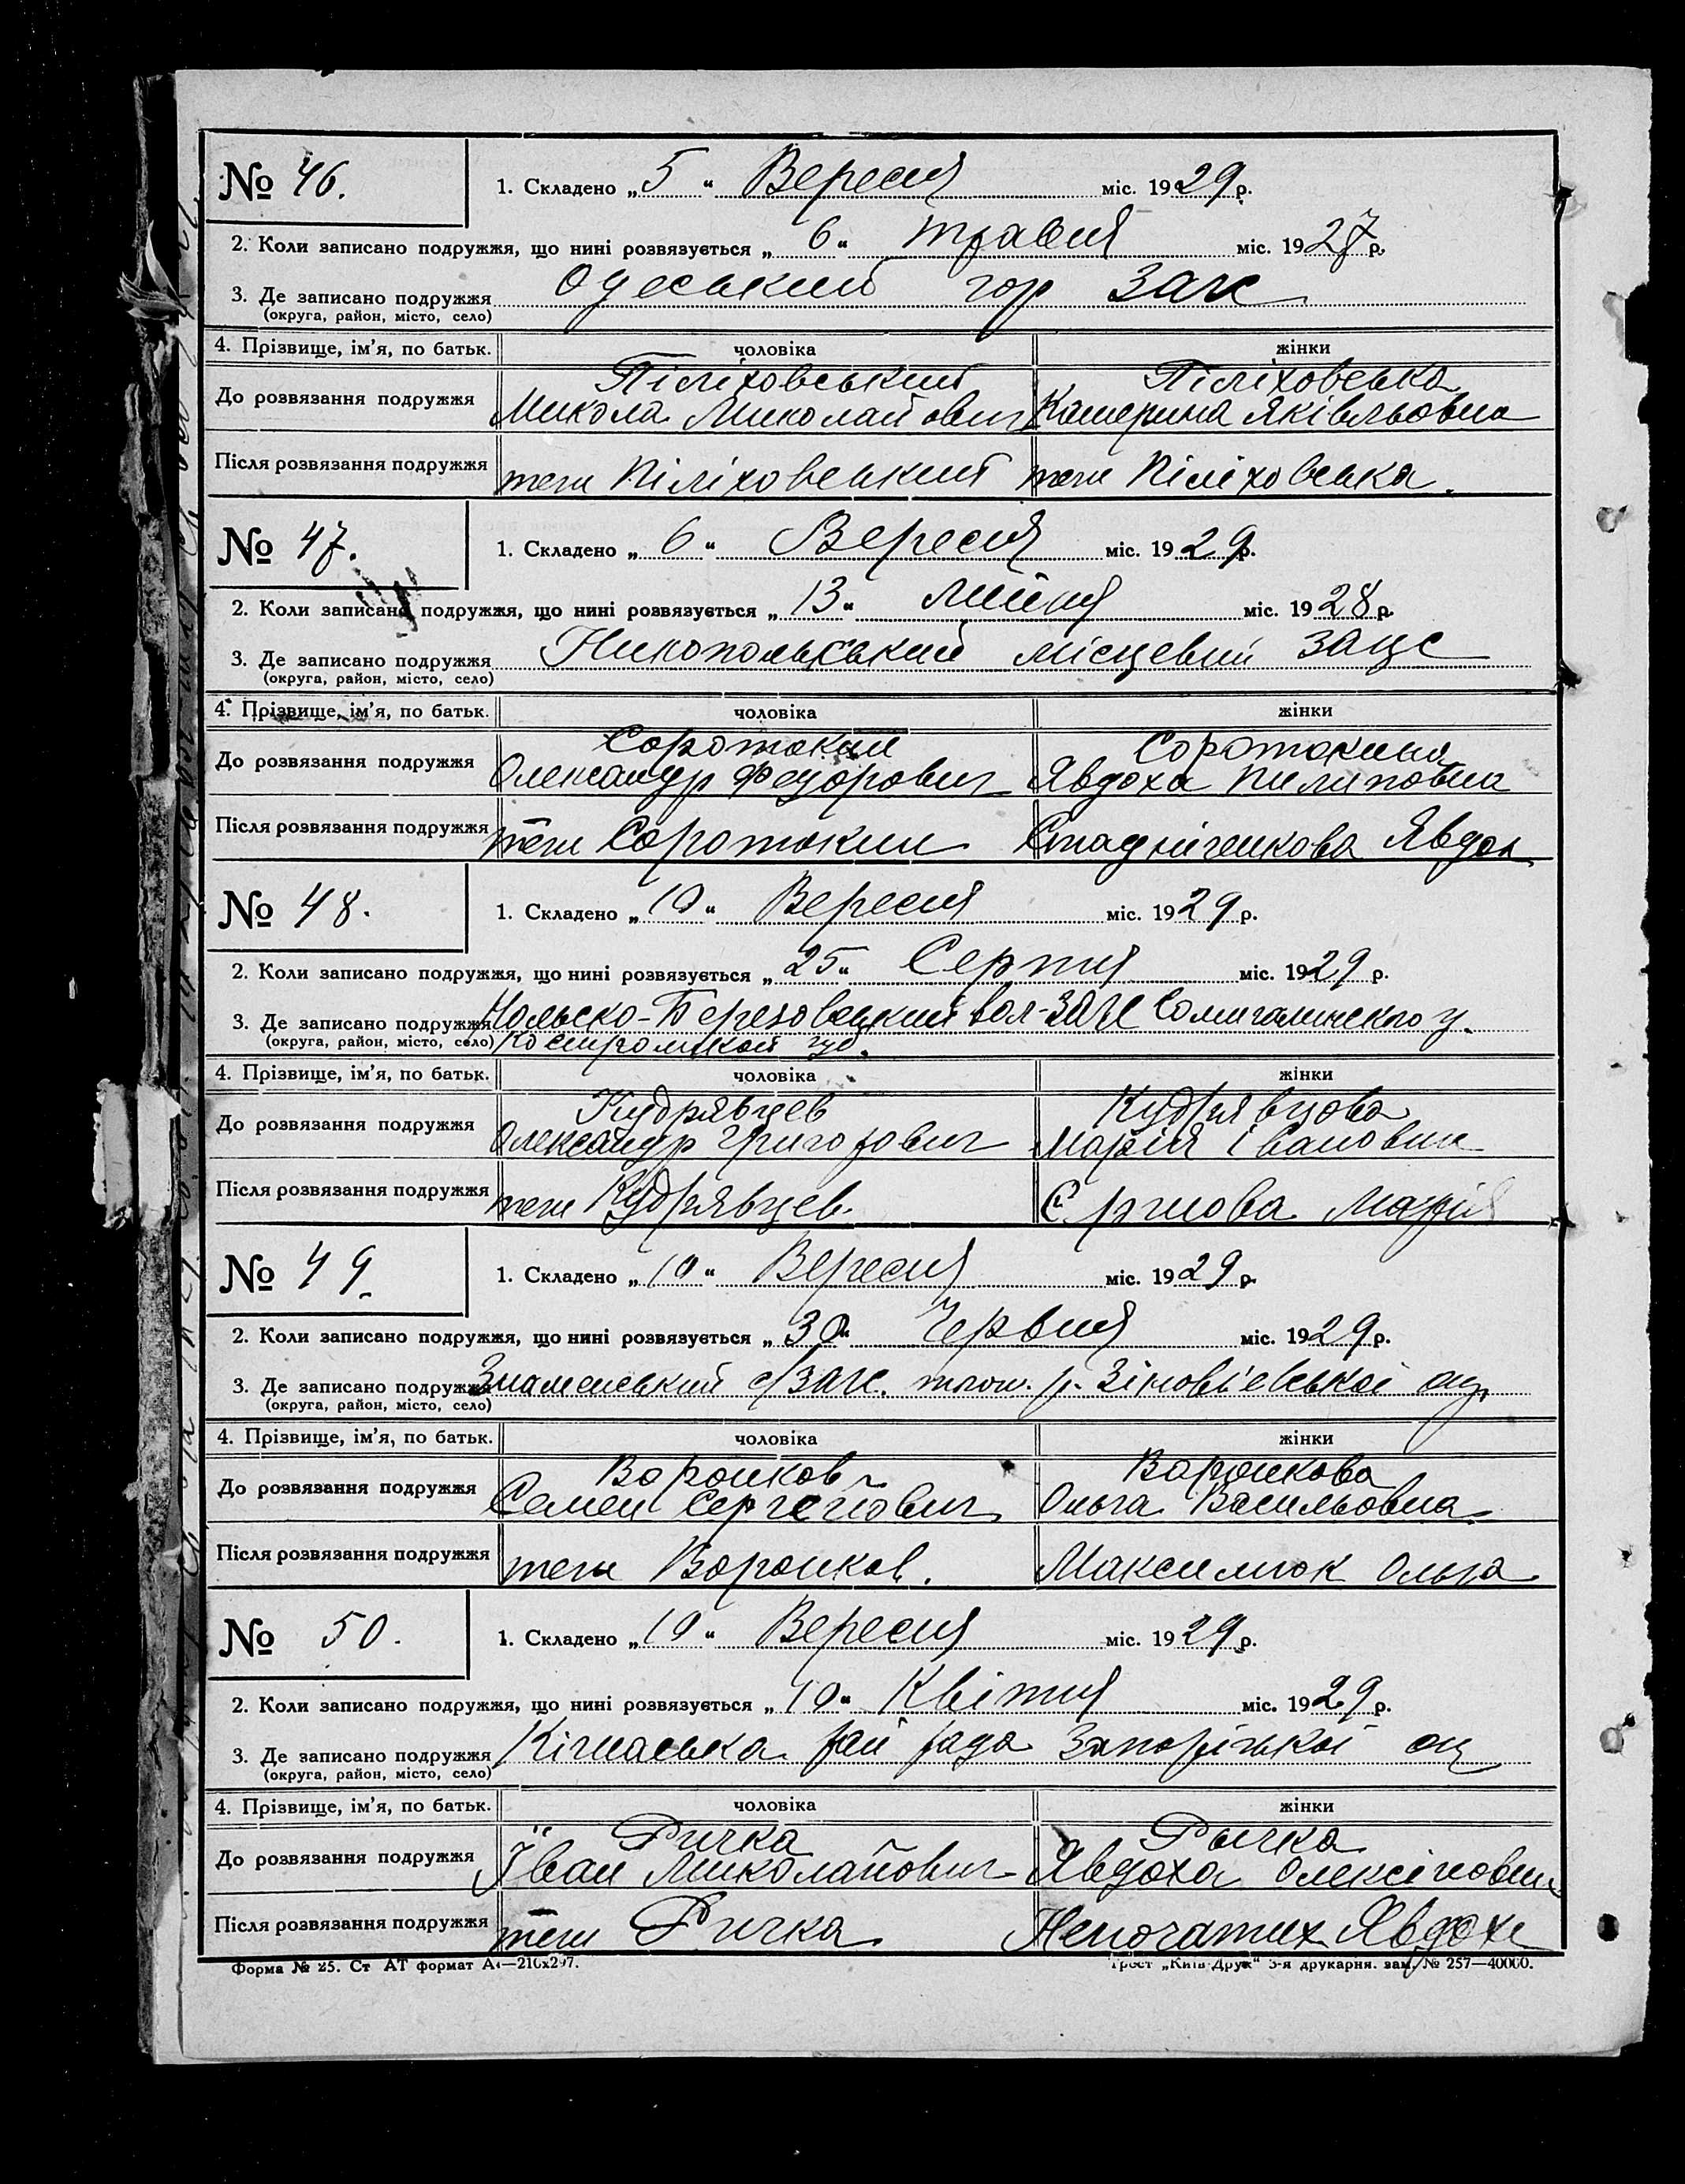 № 46.
1. Складено „ 5 “ Вересня міс. 1929 р.
2. Коли записано подружжя, що нині розвязується „ 6 “ травня міс. 1927 р.
3. Де записано подружжя Одеський гор ЗАГС
(округа, район, місто, село)
4. Прізвище, ім’я, по батьк. чоловіка жінки
Піліховський Піліховська
До розвязання подружжя Микола Миколайович Катерина Яківльовна
Після розвязання подружжя теж Піліховський теж Піліховська.
№ 47.
1. Складено „ 6 “ Вересня міс. 1929 р.
2. Коли записано подружжя, що нині розвязується „ 13 “ липня міс. 1928 р.
3. Де записано подружжя Никопольський місцевий
(округа, район, місто, село)
4. Прізвище, ім’я, по батьк. чоловіка жінки
Соротокин Соротокина
До розвязання подружжя Олександр Федорович Явдоха Пилиповна
Після розвязання подружжя теж Соротокин Стадніченкова Явдох
№ 48.
1. Складено „ 10 “ Вересня міс. 1929 р.
2. Коли записано подружжя, що нині розвязується „ 25 “ Серпня міс. 1929 р.
3. Де записано подружжя Березовецкий вол-ЗАГС Солигалинского у.
(округа, район, місто, село) Костромской губ.
4. Прізвище, ім’я, по батьк. чоловіка жінки
Кудрявцев Кудрявцова
До розвязання подружжя Олександр Григорович Марія Івановна
Після розвязання подружжя теж Кудрявцев. Марія
№ 49.
1. Складено „ 10 “ Вересня міс. 1929 р.
2. Коли записано подружжя, що нині розвязується „ 30 “ Червня міс. 1929 р.
3. Де записано подружжя Знаменський с/ЗАГС. р. Зіновієвської ок.
(округа, район, місто, село)
4. Прізвище, ім’я, по батьк. чоловіка жінки
Воронков Воронкова
До розвязання подружжя Семен Сергейович Ольга Васильовна
Після розвязання подружжя теж Воронков. Максимюк Ольга
№ 50.
1. Складено „ 10 “ Вересня міс. 1929 р.
2. Коли записано подружжя, що нині розвязується „ 10 “ Квітня міс. 1929 р.
3. Де записано подружжя Кічкаська рай рада Запорізької ок
(округа, район, місто, село)
4. Прізвище, ім’я, по батьк. чоловіка жінки
Ричка Рычка
До розвязання подружжя Іван Миколайович Явдоха Олексіловна
Після розвязання подружжя теж Ричка Непочатих Явдоха
Форма № 25. Ст АТ формат А4—210х297. Трест „Київ-Друк“ 3-я друкарня. зам. № 257—40000.